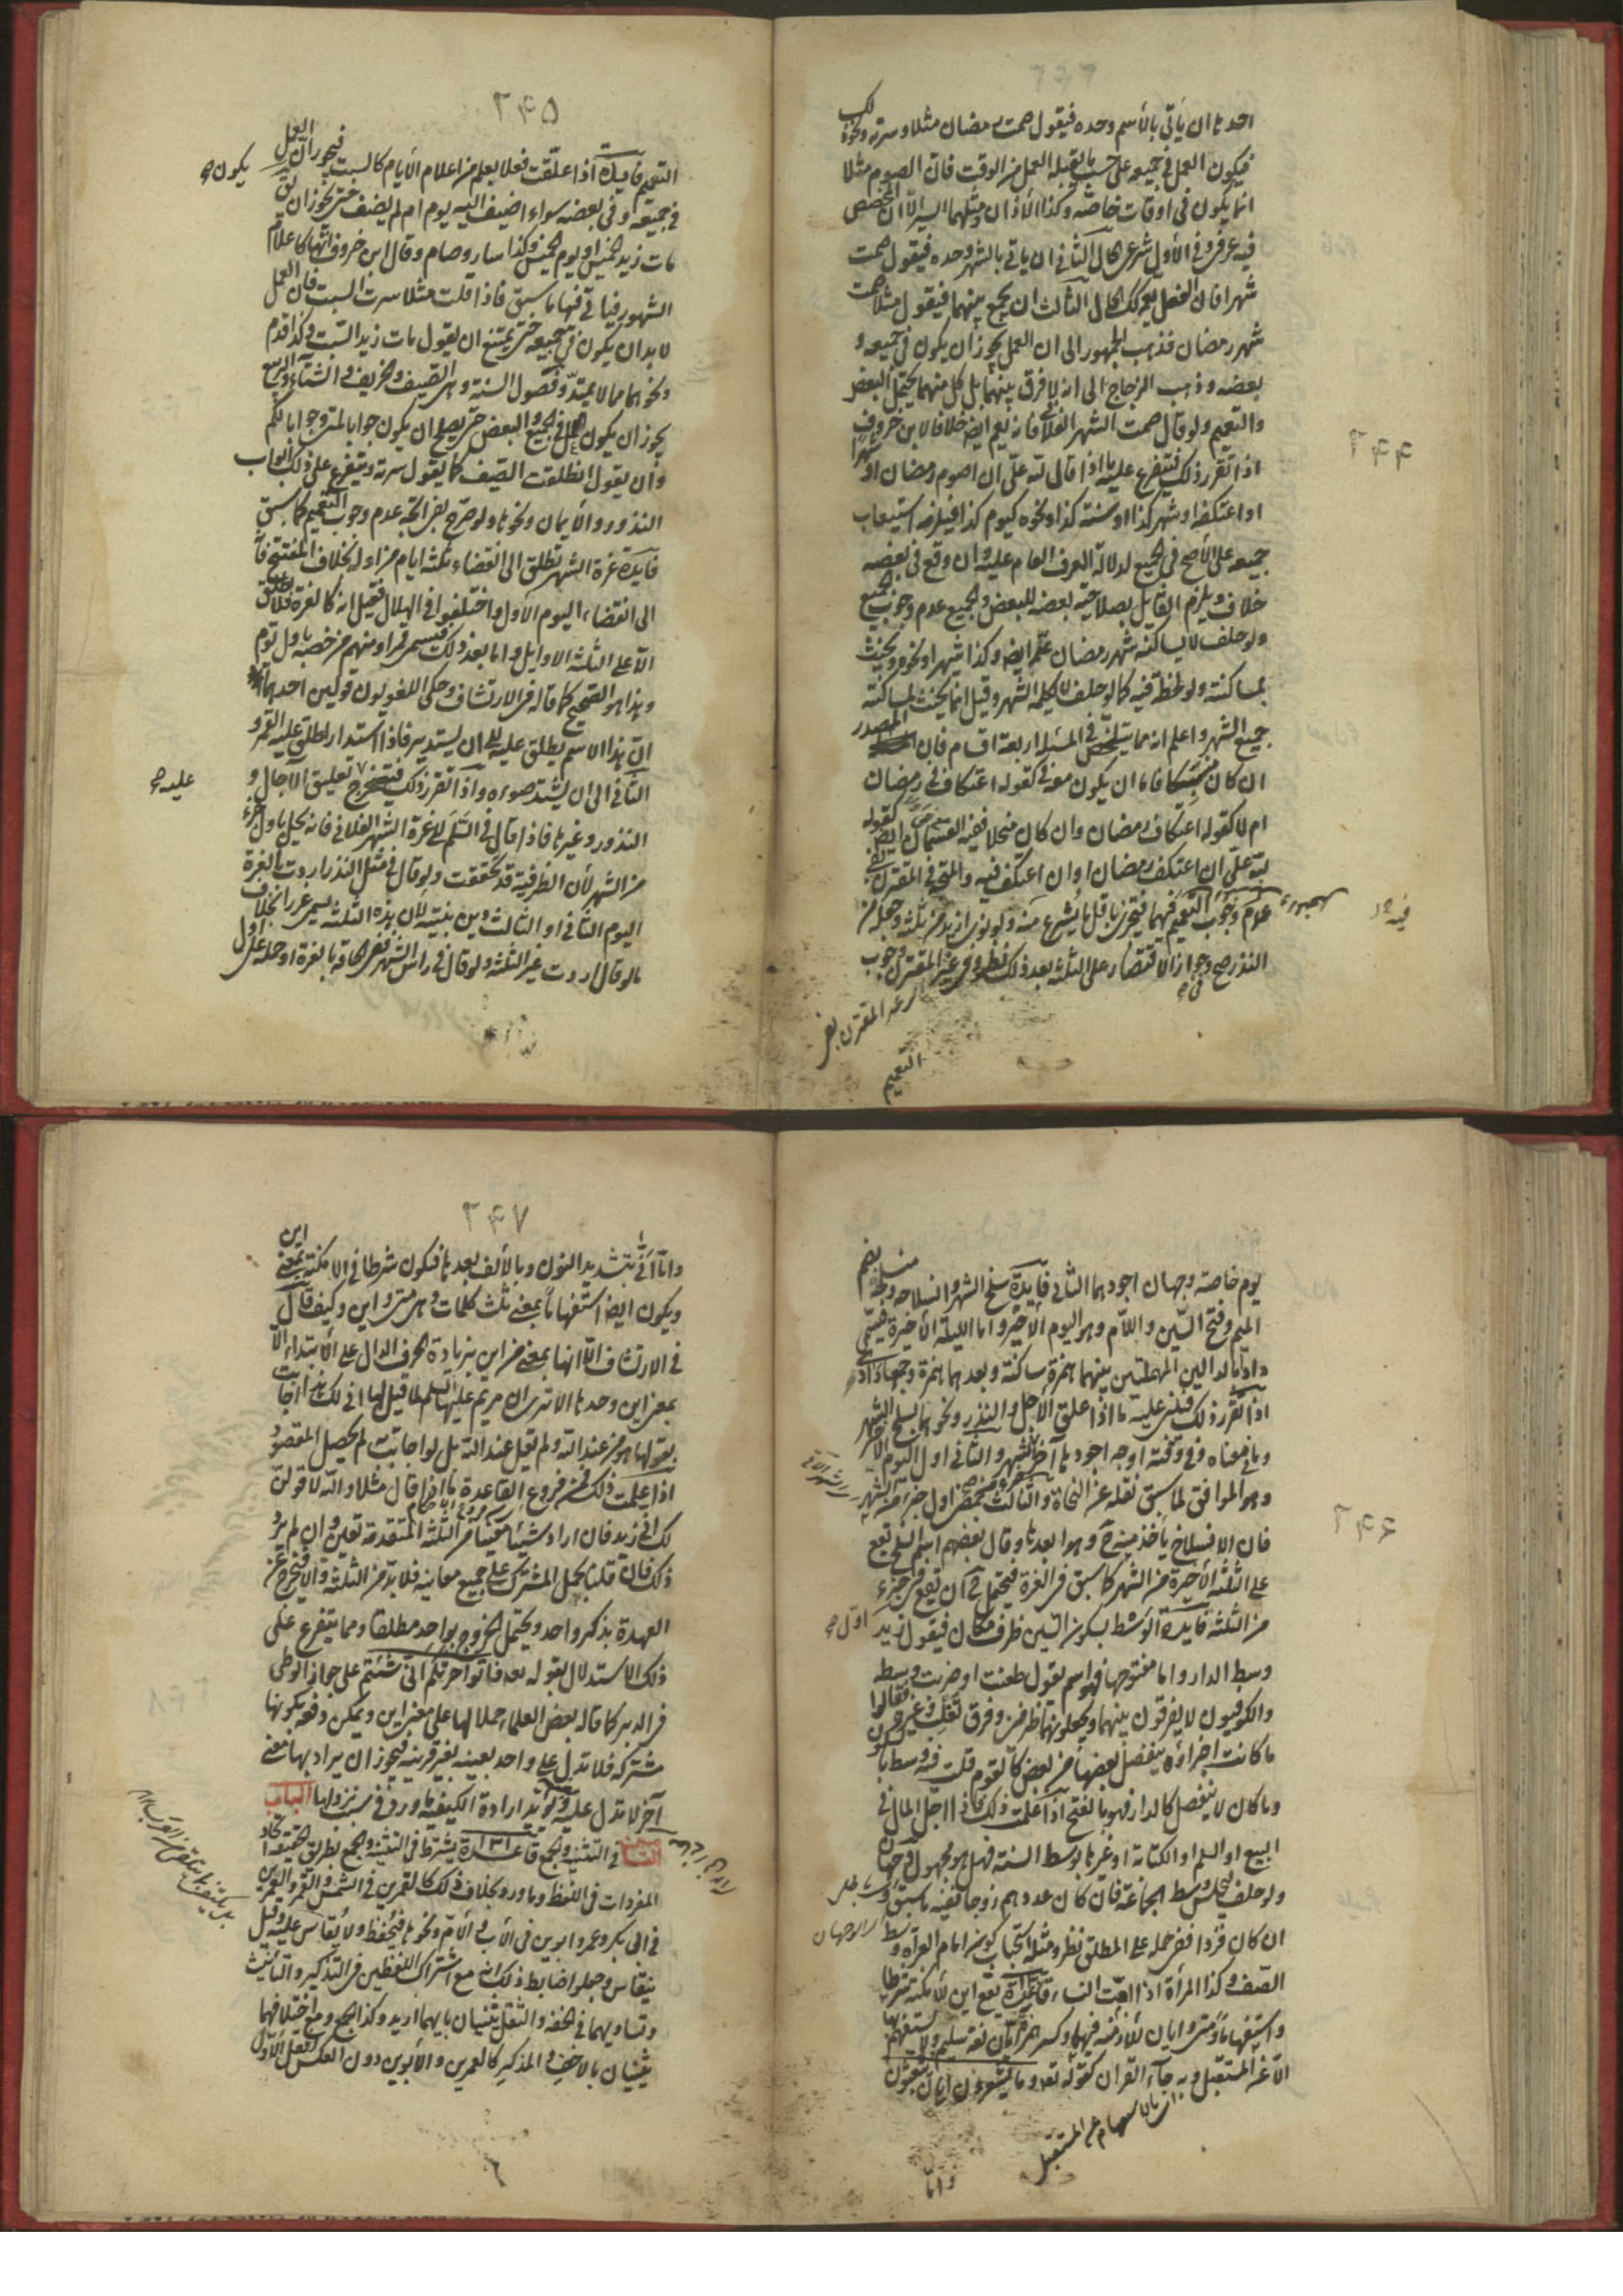 احدها ان يأتى بالأسم وحده فيقول صمت رمضان مثلا وسرته ونحو ذلك
فيكون العمل فى جميعه على حسب ما يقبله العمل من الوقت فان الصوم مثلا
انما يكون فى اوقات خاصّة وكذا الأذان ومثلهما السير الّا ان المخصص
فيه عرفى وفى الأول شرعى الحال الثانى ان ياتى بالشهر وحده فيقول صمت
شهرا فان الفعل يعم كك الحال الثالث ان يجمع بينهما فيقول مثلا صمت
شهر رمضان فذهب الجمهور الى ان العمل يجوز أن يكون فى جميعه و
بعضه وذهب الزجاج الى انه لا فرق بينهما بل كل منهما يحتمل البعض
والتعميم ولو قال صمت الشهر الفلانى فانه يعم ايضا خلافا لابن خروف
اذا تقرر ذلك فيتفرع عليه ما اذا قال لله علىّ ان اصوم رمضان او شهرا
او اعتكفه او شهر كذا او سنة كذا ونحوه كيوم كذا فيلزمه استيعاب
جميعه على الأصح فى الجميع لدلالة العرف العام عليه وان وقع فى بعضه
خلاف ويلزم القايل بصلاحية بعضه للبعض والجميع عدم وجوب الجميع
ولو حلف لا يساكنه شهر رمضان عمّ ايضا وكذا شهرا ونحوه ويحنث
بمساكنته ولو لحظة فيه كما لو حلف لا يكلمه الشهر وقيل انما يحنث بمساكنته
جميع الشهر واعلم انه مما يتلخص فى المسئلة اربعة اقسام فان المصدر
ان كان منسبكا فاما ان يكون معه فى كقوله اعتكاف فى رمضان
ام لا كقوله اعتكاف رمضان وان كان منحلا ففيه القسمان ايضا كقوله
لله علىّ ان اعتكف رمضان او ان اعتكف فيه والمتجه فى المقترن بفى
عدم وجوب التعميم فيهما فيجزى باقل ما يشرع منه ولو نوى ازيد من ثلثة وجعله من
النذر صح وجواز الاقتصار على الثلثة بعد ذلك نظر وفى غير المقترن وجوب
التعميم
٢۴۴
٢۴۵
التعميم فايدة اذا علّقت فعلا بعلم من اعلام الأيام كالسبت فيجوز ان يكون العمل
فى جميعه وفى بعضه سواء اضيف اليه يوم ام لم يضف حتى يجوز ان يق
مات زيد الخميس او يوم الخميس وكذا سار وصام وقال ابن خروف انها كاعلام
الشهور فياتى فيها ما سبق فاذا قلت مثلا سرت السبت فان العمل
لا بد ان يكون فى جميعه حتى يمتنع ان يقول مات زيد السبت وكذا قدم
ونحوهما مما لا يمتدّ وفصول السنة وهى الصيف والخريف والشتاء والربيع
يجوز ان يكون العمل فى الجميع والبعض حتى يصلح ان يكون جوابا لمتى وجوابا لكم
وان يقول انطلقت الصيف كما يقول سرته ويتفرع على ذلك ابواب
النذور والأيمان ونحوها ولو صرح بفى اتجه عدم وجوب التعميم كما سبق
فايدة غرة الشهر تطلق الى انقضاء ثلثة ايام من اوله بخلاف المفتتح فا
الى انقضاء اليوم الأول واختلفوا فى الهلال فقيل انه كالغرة فلا يطلق
الّا على الثلثة الاوايل واما بعد ذلك فيسمى قمرا ومنهم من خصه باول يوم
وهذا هو الصحيح كما قاله فى الارتشاف وحكى اللغويون قولين احدهما
ان هذا الاسم يطلق عليه الى ان يستدير فاذا استدار اطلق عليه القمر و
الثانى الى ان يشتد ضوءه واذا تقرر ذلك فيتخرج عليه تعليق الآجال و
النذور وغيرها فاذا قال فى السّلم لاغرة الشهر الفلانى فانه يحل باول جزء
من الشهر لأن الظرفية قد تحققت ولو قال فى مثل النذر اردت بالغرة
اليوم الثانى او الثالث دين بنيته لان هذه الثلثة يسمى غررا بخلاف
ما لو قال اردت غير الثلثة ولو قال فى رأس الشهر ففى الحاقه بالغرة او حمله على اول
يوم خاصة وجهان اجودهما الثانى فايدة سلخ الشهر وانسلاخه ومنسلخه بضم
الميم وفتح السّين واللّام وهو اليوم الأخير واما الليلة الأخيرة فيسمى
دادا بالدالين المهملتين بينهما همزة ساكنة وبعدهما همزة وجمعها دآدى
اذا تقرر ذلك فينبنى عليه ما اذا علق الأجل والنذر ونحوهما بسلخ الشهر
وما فى معناه وفى وقته اوجه اجودها آخر الشهر والثانى اول اليوم الأخير
وهو الموافق لما سبق نقله عن النحاة والثالث بمضى اول جزء من الشهر
فان الانسلاخ يأخذ منه ح وهو ابعدها وقال بعضهم اسم السلخ يقع
على الثلثة الأخيرة من الشهر كما سبق فى الغرة فيحتمل ح ان يقع فى اول جزء
من الثلثة فايدة الوسط بسكون السّين ظرف مكان فيقول زيد
وسط الدار واما مفتوحها فهو اسم يقول طعنت او ضربت وسطه
والكوفيون لا يفرقون بينهما ويجعلونهما ظرفين وفرق ثعلب وغيره فقالوا
ما كانت اجزاؤه ينفصل بعضها من بعض كالقوم قلت فيه وسط بالسكون
وما كان لا ينفصل كالدار فهو بالفتح اذا علمت ذلك فاذا اجل المال فى
البيع او السلم او الكتابة او غيرها بوسط السنة فهل هو مجهول وجهان
ولو حلف ليجلس وسط الجماعة فان كان عددهم زوجا ففيه ما سبق
ان كان فردا ففى حمله على المطلق نظر ومثله استحباب كون امام العراة وسط
الصف وكذا المرأة اذا امّت النساء قاعدة يقع اين للأمكنة شرطا
واستفهاما ومتى وايان للأزمنة فيهما وكسر همزة ايّان لغة سليم ولا يستفهم بها
الّا عن المستقبل وبه جاء القرآن كقوله تعه وما يشعرون ايان يبعثون
واما
٢۴۶
٢۴٧
واما أنّى بتشديد النون وبالألف بعدها فيكون شرطا فى الامكنة بمعنى اين
ويكون ايضا استفهاما بمعنى ثلث كلمات وهى متى واين وكيف قال
فى الارتشاف الّا انها بمعنى من اين بزيادة الحرف الدال على الأبتداء لا
بمعنى اين وحدها الا ترى ان مريم عليها السلم لما قيل لها انى لك هذا اجابت
بقولها هو من عند الله ولم تقل عند الله بل لو اجابت لم يحصل المقصود
اذا علمت ذلك فمن فروع القاعدة ما اذا قال مثلا والله لا قولنّ
لك انى زيد فان اراد شيئا معينا من الثلثة المتقدمة تعين وان لم يرد
ذلك فان قلنا بحمل المشترك على جميع معانيه فلا بد من الثلثة والا فيخرج عن
العهدة بذكر واحد ويحتمل الخروج بواحد مطلقا ومما يتفرع على
ذلك الاستدلال بقوله تعه فأتوا حرثكم انّى شئتم على جواز الوطى
فى الدبر كما قاله بعض العلماء حملا لها على معنى اين ويمكن دفعه بكونها
مشتركة فلا تدل على واحد بعينه بغير قرينة فيجوز ان يراد بها معنى
آخر لا تدل عليه ويؤيّد ارادة الكيفية ما ورد فى سبب نزولها الباب
الثالث فى التثنية والجمع قاعدة يشترط فى التثنية والجمع بطريق الحقيقة اتحاد
المفردات فى اللفظ وما ورد بخلاف ذلك كالقمرين فى الشمس والقمر والعمرين
فى ابى بكر وعمر وابوين فى الأب والأمّ ونحوها فيحفظ ولا يقاس عليه وقيل
ينقاس وجعلوا ضابط ذلك انه مع اشتراك اللفظين فى التذكير والتأنيث
وتساويهما فى الخفة والثقل يثنيان بايهما اريد وكذا الجمع ومع اختلافهما
يثنيان بالاخف والمذكر كالعمرين والأبوين دون العكس وفعل الأول